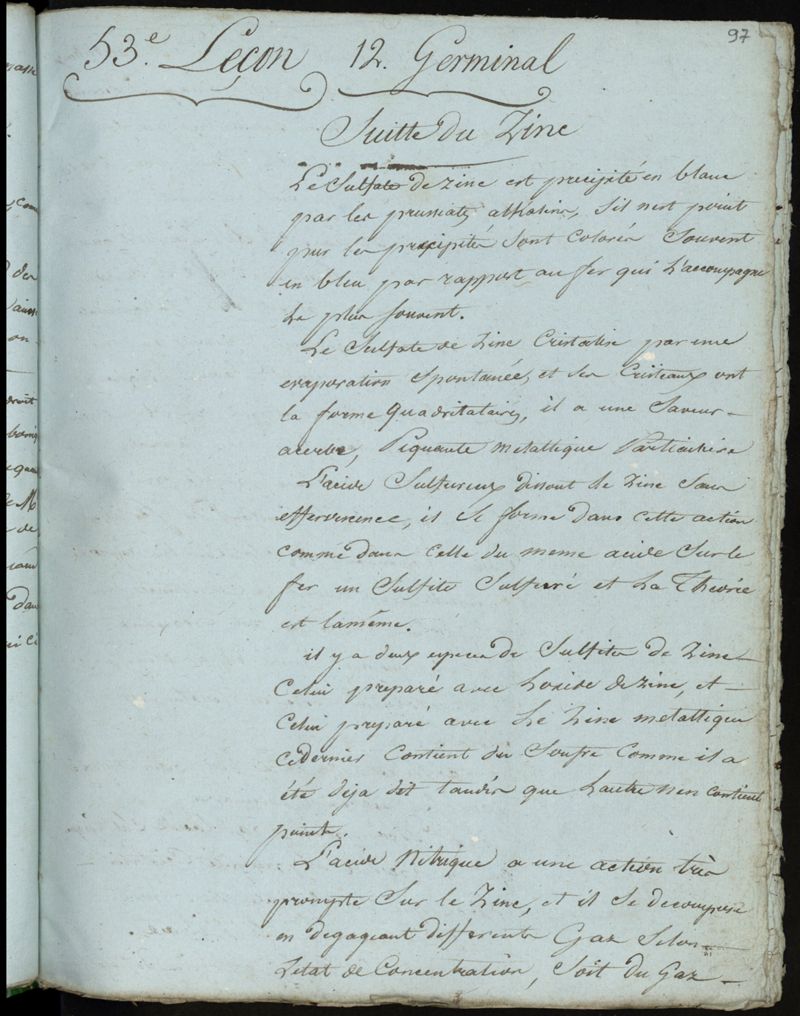 97
53.e Leçon 12. Germinal
Suitte du Zinc
Le Sulfate de zinc est precipité en blanc
par les prussiates alkalins, s'il n'est point
pur les precipités sont colorés souvent
en bleu par rapport au fer qui l'accompagne
le plus souvent.
Le Sulfate de Zinc Cristalise par une
evaporation spontanée, et ses Cristeaux ont
la forme quadrilatairs, il a une Saveur
acerbe, Piquante metallique Particuliere
L'acide Sulfureux dissout le Zinc Sans
effervescence, il se forme dans cette action
comme dans celle du meme acide Sur le
fer un Sulfite Sulfuré et la Theorie
est la même.
il y a deux especes de Sulfites de Zinc
Celui preparé avec l'oxide de zinc, et
Celui preparé avec le Zinc metallique
ce dernier Contient du Soufre Comme il a
été deja dit tandis que l'autre n'en contient
point.
L'acide Nitrique a une action très
prompte Sur le Zinc, et il se decompose
en degageant differents Gaz Selon
l'etat de Concentration, Soit du Gaz